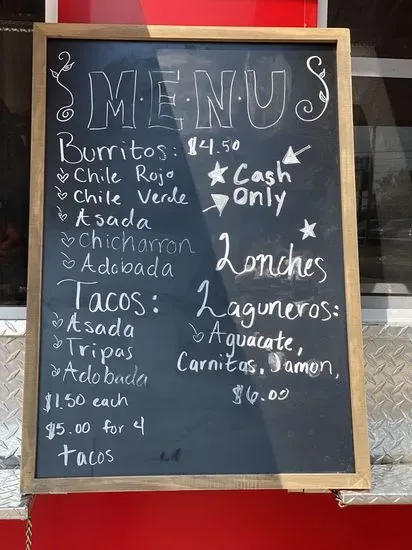 M.E.N.U
Burritos: $4.50
Chile Rojo
Chile Verde
Asada
Chicharron
Adobada
Cash
Only
Tacos:
Asada
Tripas
Adobada
$1.50 each
$5.00 for 4
tacos
Lonches
Laguneros:
Aguacate,
Carnitas, Jamon,
$6.00